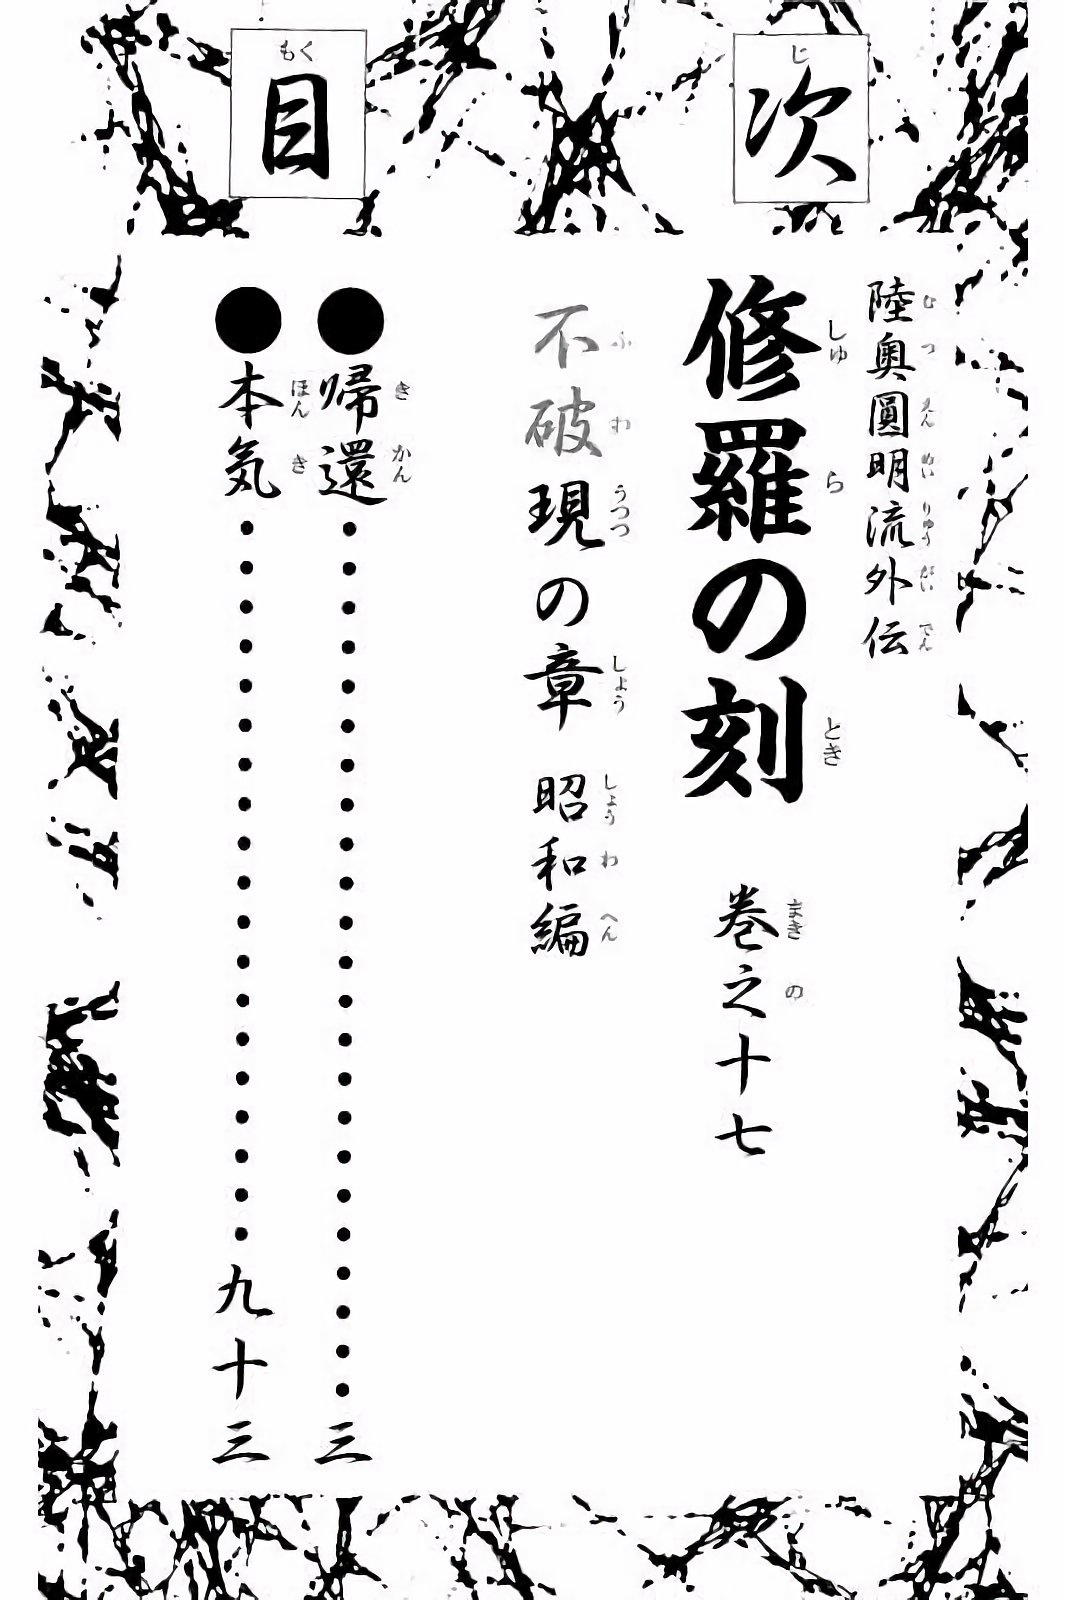 目次
陸奥圓明流外伝
修羅の刻 巻之十七
不破現の章 昭和編
●帰還・・・・・・・・・・・・・・・・・・・・・・・三
●本気・・・・・・・・・・・・・・・・・・・九十三